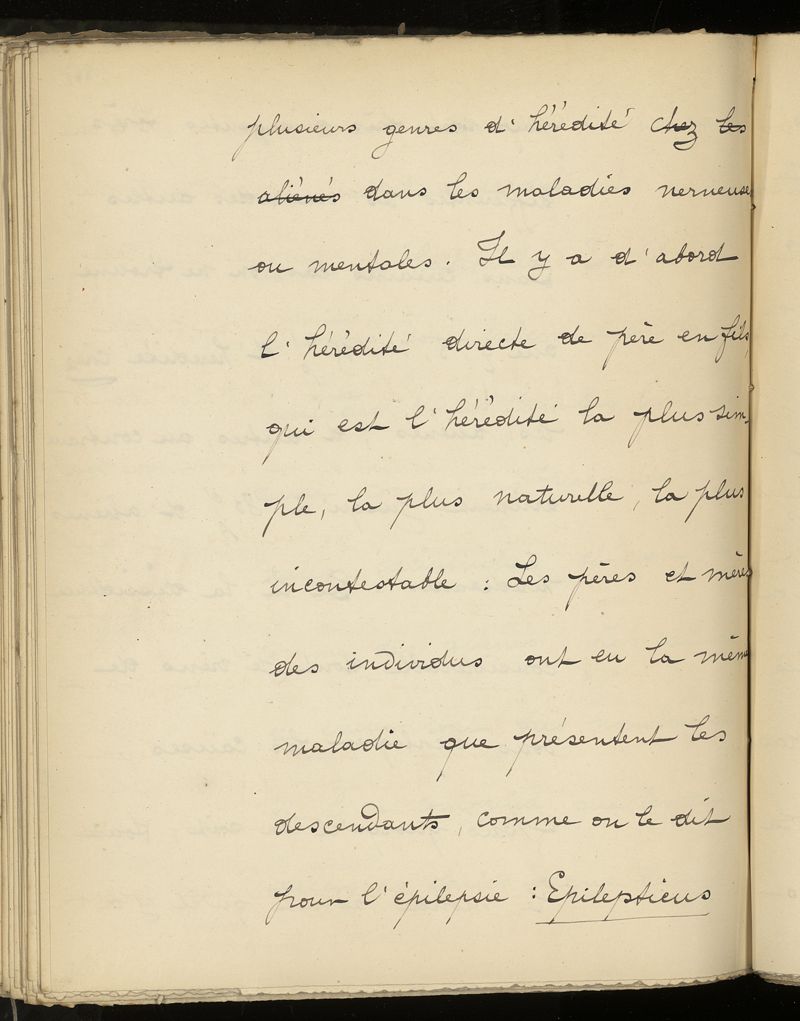 plusieurs genres d'hérédité chez les
aliénés dans les maladies nerveuses
ou mentales. Il y a d'abord
l'hérédité directe de père en fils,
qui est l'hérédité la plus sim-
ple, la plus naturelle, la plus
incontestable : Les pères et mères
des individus ont eu la même
maladie que présentent les
descendants, comme on le dit
pour l'épilepsie : Epilepticus